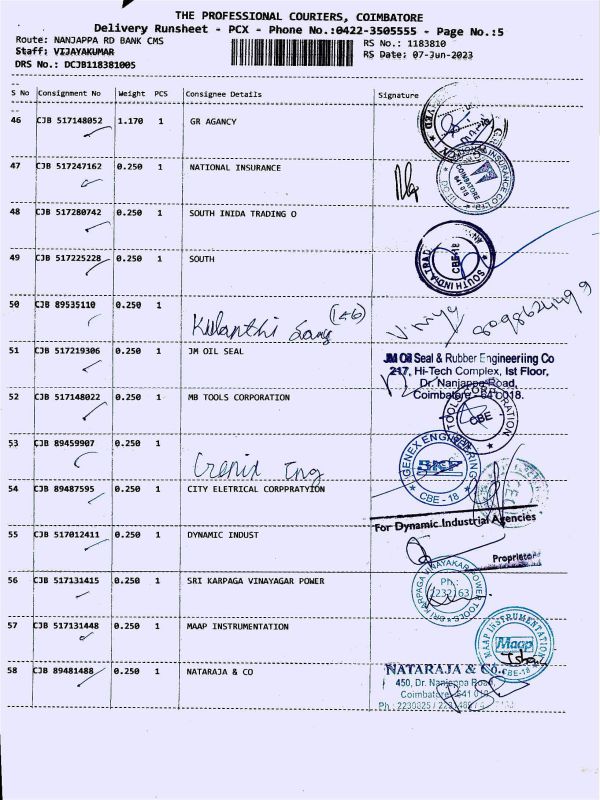 THE PROFESSIONAL COURIERS, COIMBATORE
Delivery Runsheet - PCX - Phone No.:0422-3505555 - Page No.:5
Route: NANJAPPA RD BANK CMS
RS No.: 1183810
Staff: VIJAYAKUMAR
RS Date: 07-Jun-2023
DRS No.: DCJB118381005
S No Consignment No Weight PCS Consignee Details Signature
46 CJB 517148052 1.170 1 GR AGANCY
47 CJB 517247162 0.250 1 NATIONAL INSURANCE
INSURANCE CO LTD
COIMBATORE
641 018
48 CJB 517280742 0.250 1 SOUTH INIDA TRADING O
49 CJB 517225228 0.250 1 SOUTH
SOUTH INDIA TRAD
CBE-18
50 CJB 89535110 0.250 1
Kulanthi
51 CJB 517219306 0.250 1 JM OIL SEAL
JM Oil Seal & Rubber Engineeriing Co
217, Hi-Tech Complex, Ist Floor,
Dr. Nanjappa Road,
Coimbatore - 641 0018.
52 CJB 517148022 0.250 1 MB TOOLS CORPORATION
TOOLS CORPORATION
CBE
53 CJB 89459907 0.250 1
GENEX ENGINEERING
SKF
CBE - 18
54 CJB 89487595 0.250 1 CITY ELETRICAL CORPPRATYION
For Dynamic Industrial Agencies
55 CJB 517012411 0.250 1 DYNAMIC INDUST
Proprietor
56 CJB 517131415 0.250 1 SRI KARPAGA VINAYAGAR POWER
SRI KARPAGA VINAYAKAR POWER TOOLS
Ph :
2232163
57 CJB 517131448 0.250 1 MAAP INSTRUMENTATION
MAAP INSTRUMENTATION
Maap
CBE-18
58 CJB 89481488 0.250 1 NATARAJA & CO
NATARAJA & Co.
450, Dr. Nanjappa Road,
Coimbatore - 641 018